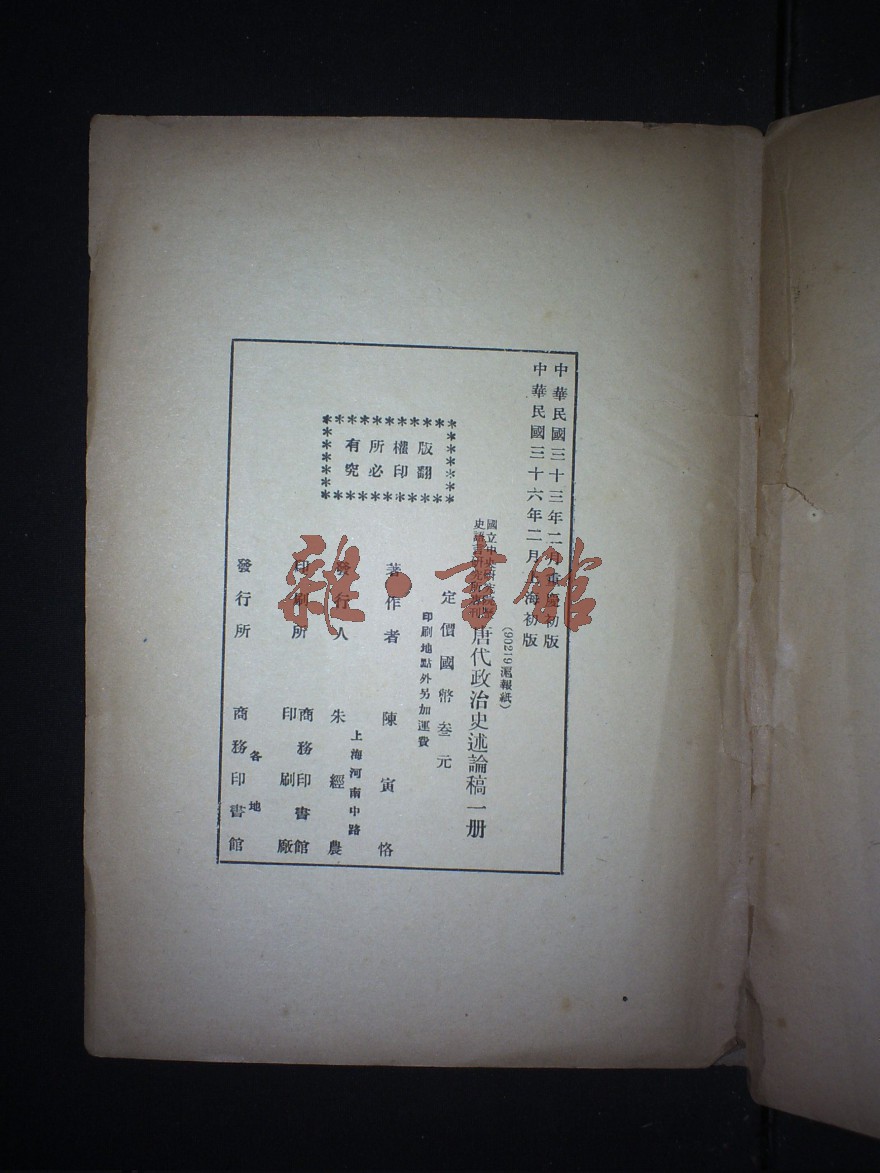 中華民國三十三年二月重慶初版
中華民國三十六年二月上海初版
(90219滬報紙)
國立中央研究院歷史語言研究所專刊
唐代政治史述論稿一册
定價國幣叁元
印刷地點外另加運費
版權所有
翻印必究
著作者 陳寅恪
發行人 朱經農
上海河南中路
印刷所 商務印書館印刷廠
發行所 商務印書館
各地
雜·書館